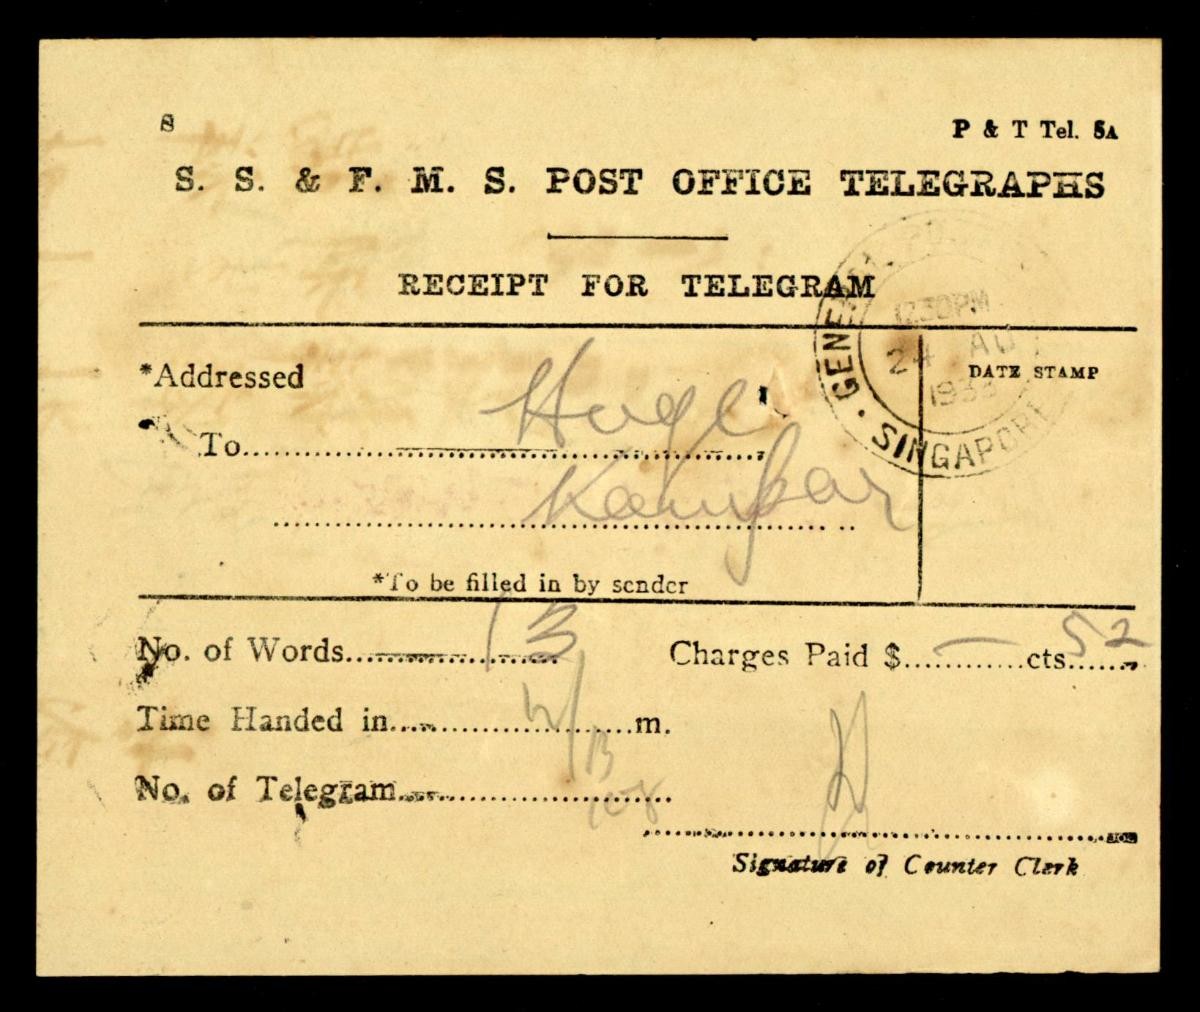 8
P & T Tel. 5A
S. S. & F. M. S. POST OFFICE TELEGRAPHS
RECEIPT FOR TELEGRAM
GENERAL POST SINGAPORE
12.30PM
24 AU
193
DATE STAMP
*Addressed
To
Kampar
*To be filled in by sender
No. of Words 13
Charges Paid $ — cts 52
Time Handed in m.
No. of Telegram
Signature of Counter Clerk